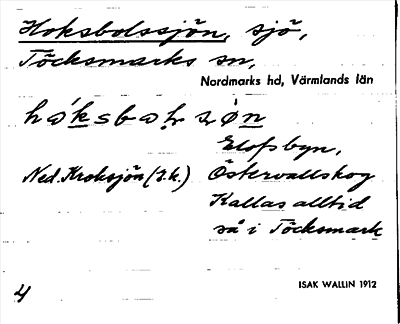 Hoksbolssjön, sjö,
Töcksmarks sn,
Nordmarks hd, Värmlands län
Elofsbyn,
Ned. Kroksjön (J.k.) Östervallskog
Kallas alltid
så i Töcksmark
4
ISAK WALLIN 1912